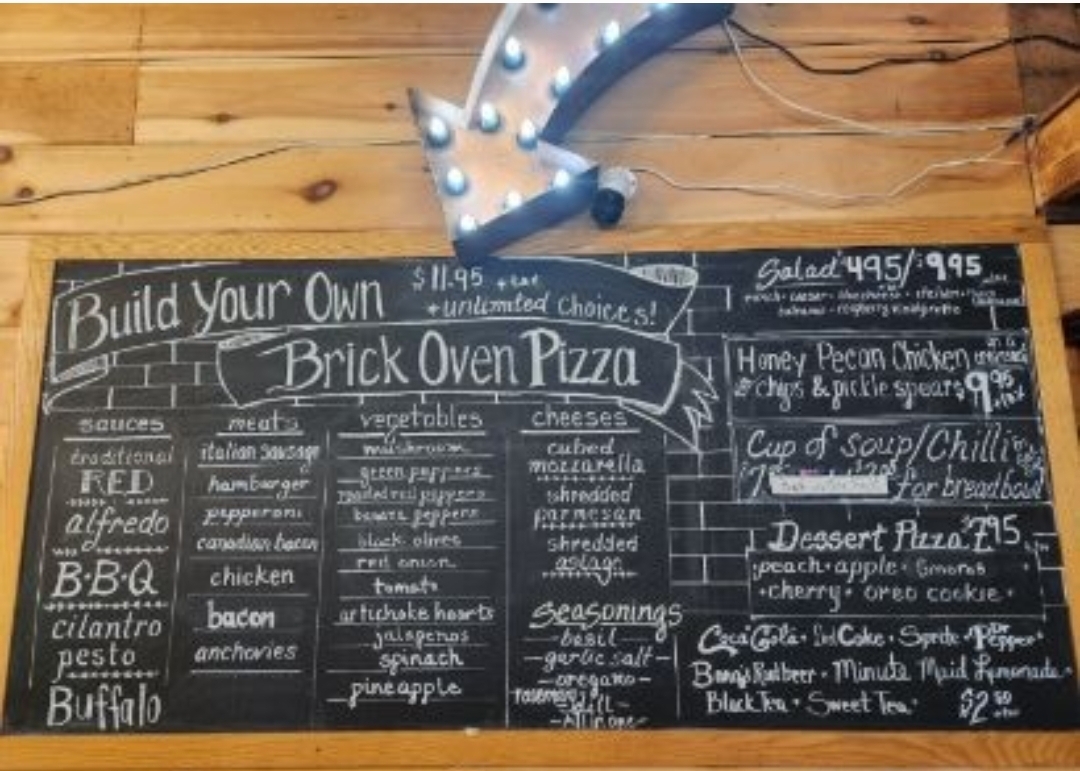 Build Your Own
$11.95 + tax
+ unlimited choices!
Brick Oven Pizza
sauces
traditional
RED
alfredo
B·B·Q
cilantro
pesto
Buffalo
meats
italian sausage
hamburger
pepperoni
canadian bacon
chicken
bacon
anchovies
vegetables
mushroom
green peppers
roasted red peppers
banana peppers
black olives
red onion
tomato
artichoke hearts
jalapenos
spinach
pineapple
cheeses
cubed
mozzarella
shredded
parmesan
shredded
asiago
seasonings
-basil-
-garlic salt-
-oregano-
rosemary -dill-
Salad $4.95/$9.95
Honey Pecan Chicken on a
chips & pickle spears $9.95 + tax
Cup of soup/Chilli
for breadbowl
Dessert Pizza $7.95
peach · apple · Smores
· cherry · oreo cookie ·
Coca Cola · Diet Coke · Sprite · Dr Pepper
Barq's Rootbeer · Minute Maid Lemonade
Black Tea · Sweet Tea